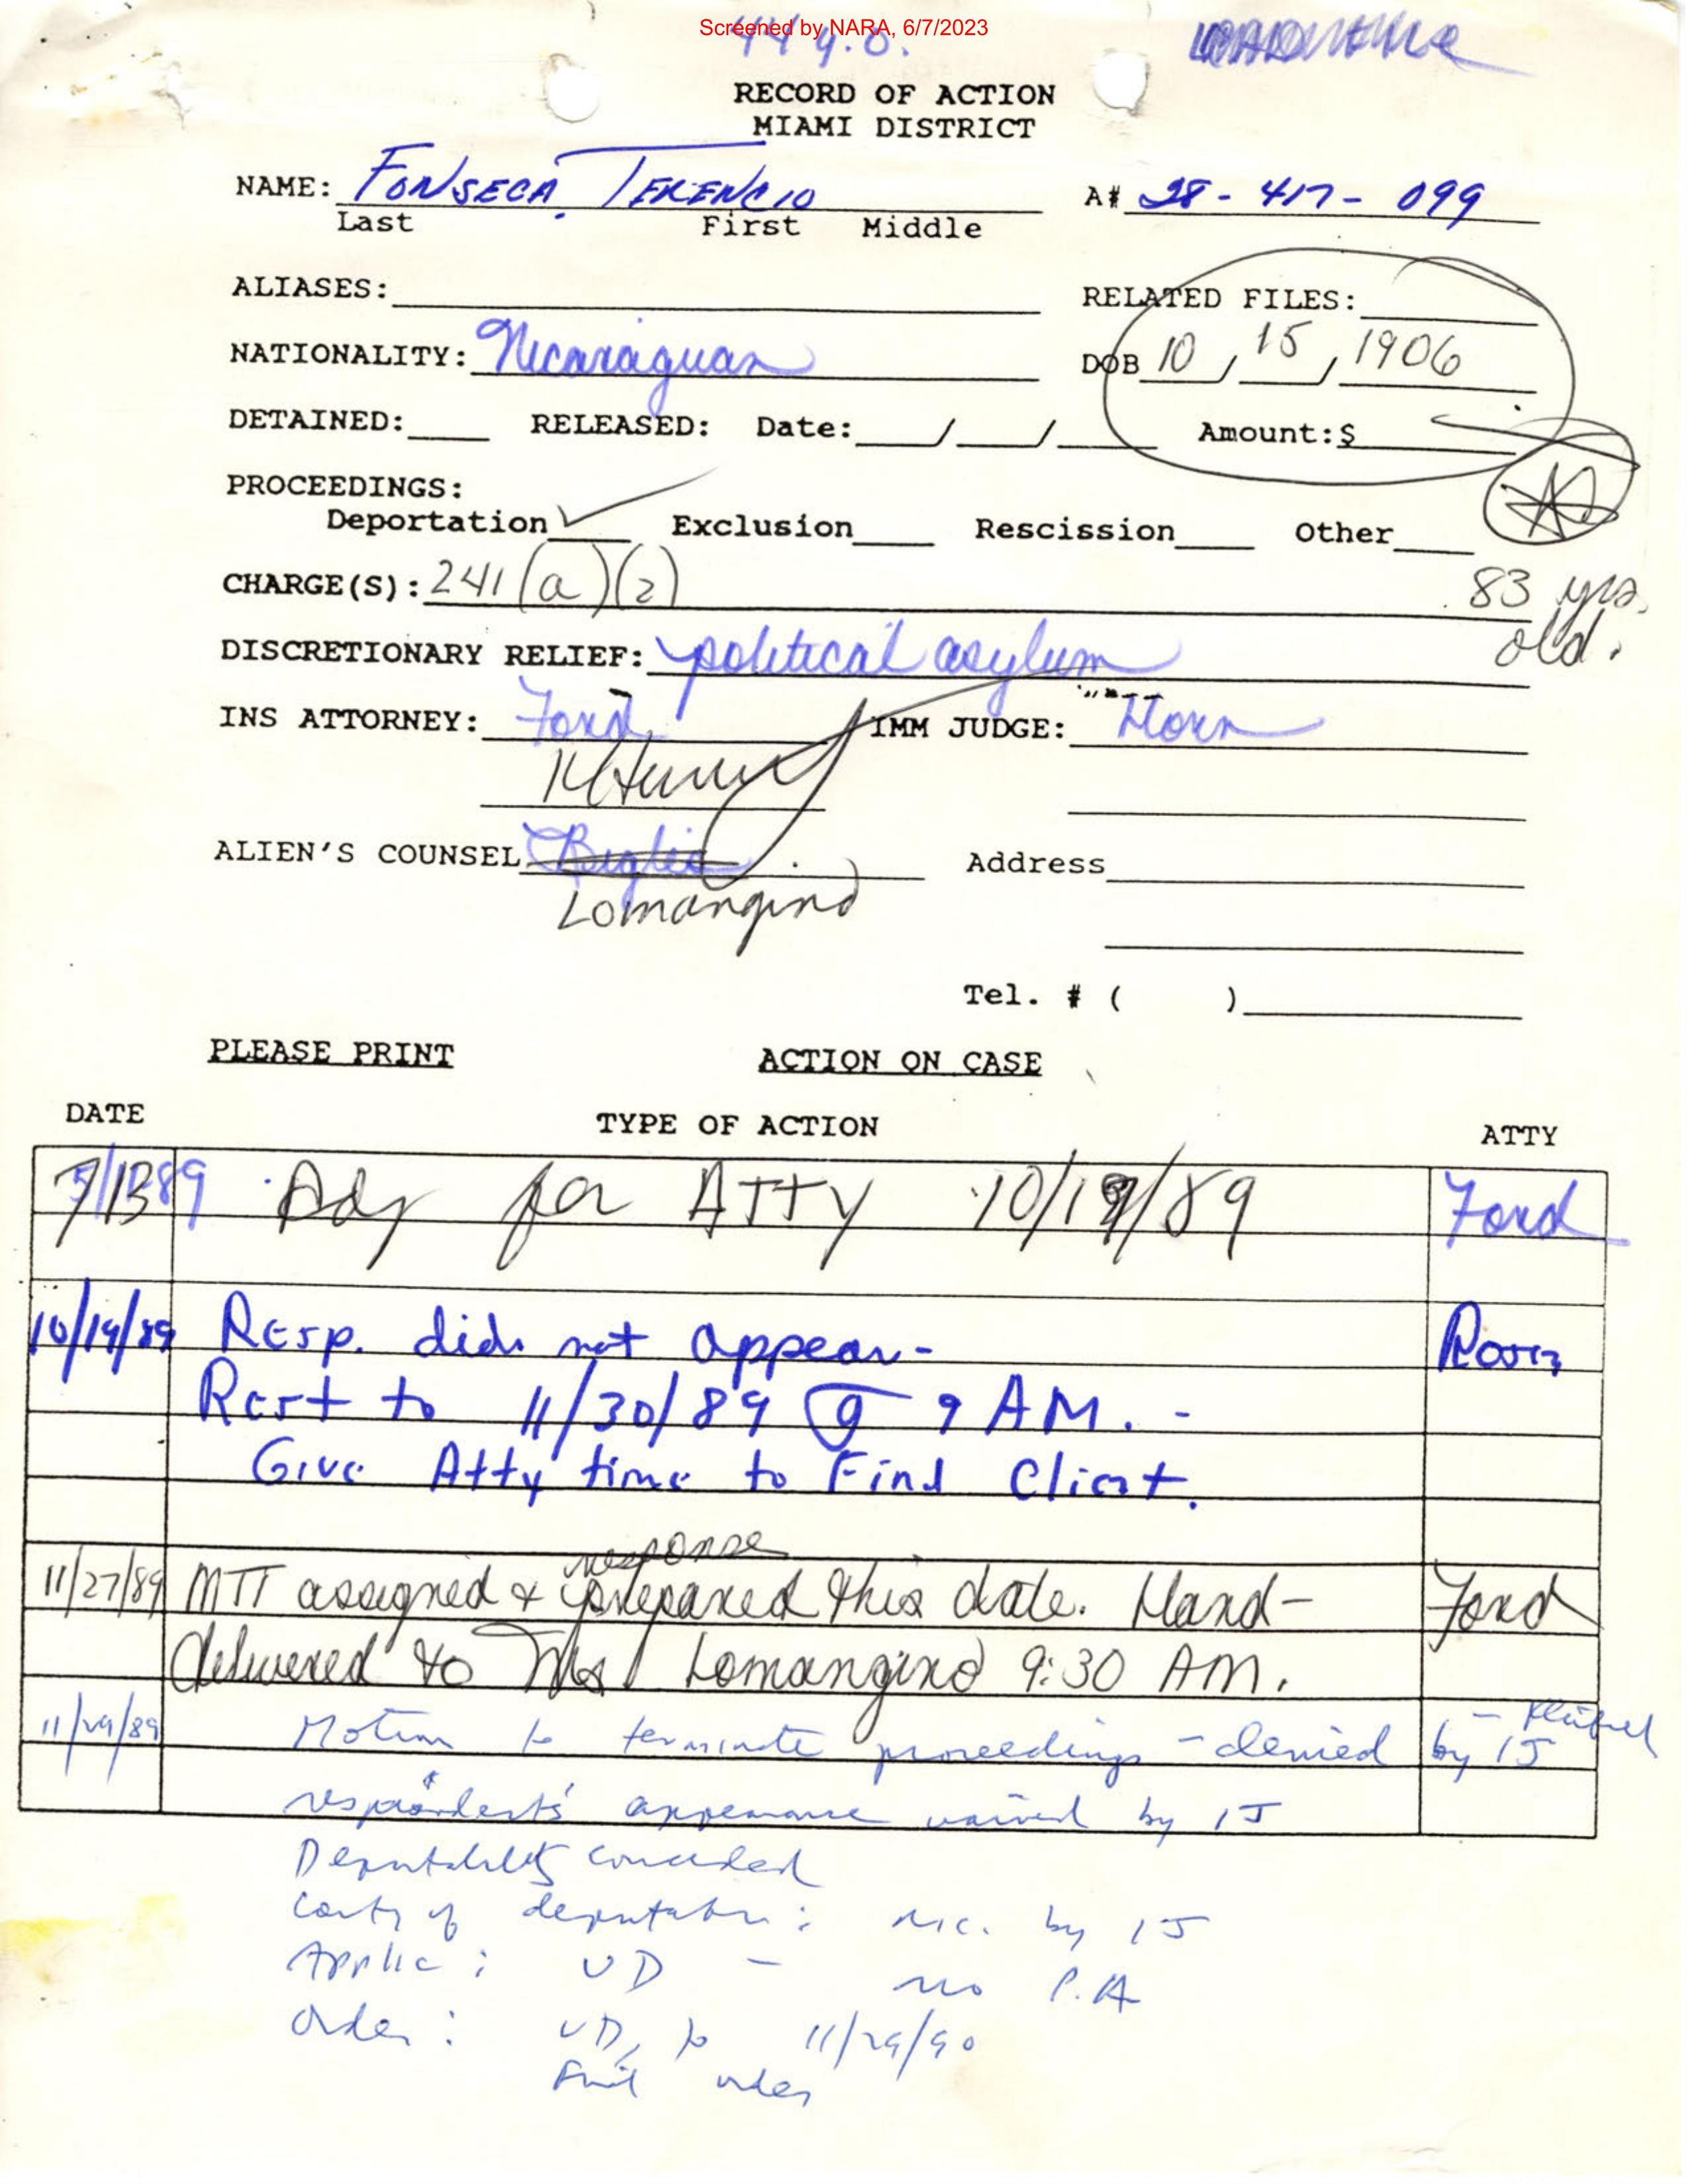 Screened by NARA, 6/7/2023
44 y.o.
RECORD OF ACTION
MIAMI DISTRICT
NAME: FONSECA, TERENCIO A# 28-417-099
Last First Middle
ALIASES: RELATED FILES:
NATIONALITY: Nicaraguan DOB 10, 15, 1906
DETAINED: RELEASED: Date: / / Amount:$
PROCEEDINGS:
Deportation ✓ Exclusion Rescission Other
CHARGE(S): 241(a)(2) 83 yrs. old.
DISCRETIONARY RELIEF: political asylum
INS ATTORNEY: Ford IMM JUDGE: Horn
ALIEN'S COUNSEL Address
Lomangino
Tel. # ( )
PLEASE PRINT ACTION ON CASE
DATE TYPE OF ACTION ATTY
7/13 89 Adj for ATTY 10/19/89 Ford
10/19/89 Resp. did not appear-
Reset to 11/30/89 @ 9 AM. -
Give Atty time to Find Client.
response
11/27/89 MTT assigned & prepared this date. Hand- Ford
delivered to Ms Lomangino 9:30 AM.
11/29/89 Motion to terminate proceedings - denied by IJ
respondent's appearance waived by IJ
Deportability conceded
Contry of deportation: Nic. by IJ
Applic: VD - no P.A
Order: VD, to 11/29/90
Final order